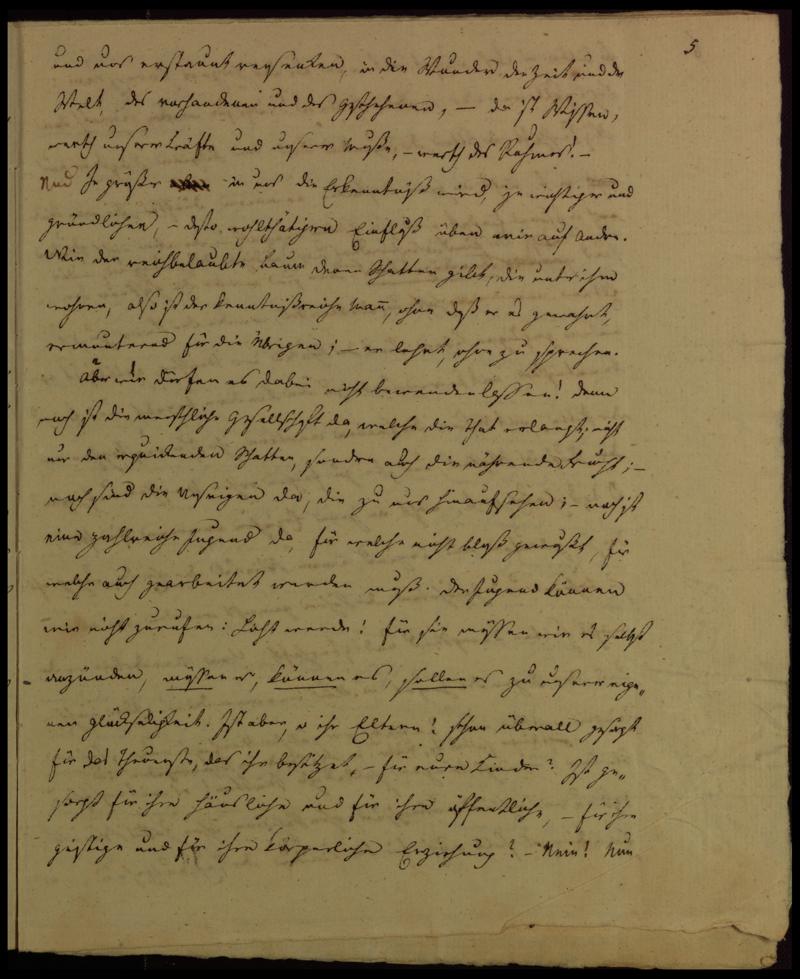 5
und uns erstaunt versenken, in die Wunder der Zeit und der
Welt, des vorhandenen und des Geschehenen, — da ist Wissen,
werth unserer Kräfte und unserer Muße, – werth des Ruhmes! –
Und Je größer in uns die Erkenntniß wird, je wichtiger und
gründlicher, – desto wohlthätigern Einfluß üben wir auf Andre.
Wie der reichbelaubte Baum denen Schatten giebt, die unter ihm
wohnen, also ist der kenntnißreiche Mañ, ohne daß er es gewahrt,
ermunternd für die Übrigen; – er lehrt, ohne zu sprechen.
Aber wir dürfen es dabei nicht bewenden lassen! denn
noch ist die menschliche Gesellschaft da, welche die That verlangt; nicht
nur den erquickenden Schatten, sondern auch die nährende Frucht; –
noch sind die Unsrigen da, die zu uns hinaufsehen; – noch ist
eine zahlreiche Jugend da, für welche nicht bloß gewußt, für
welche auch gearbeitet werden muß. Der Jugend können
wir nicht zurufen: Licht werde! für sie müssen wir es selbst
anzünden, müssen es, können es, sollen es zu unserer eige„
nen Glückseligkeit. Ist aber, o ihr Eltern! schon überall gesorgt
für das Theuerste, das ihr besitzet, – für eure Kinder? Ist ge„
sorgt für ihre häusliche und für ihre öffentliche, – für ihre
geistige und für ihre körperliche Erziehung? – Nein! Nun